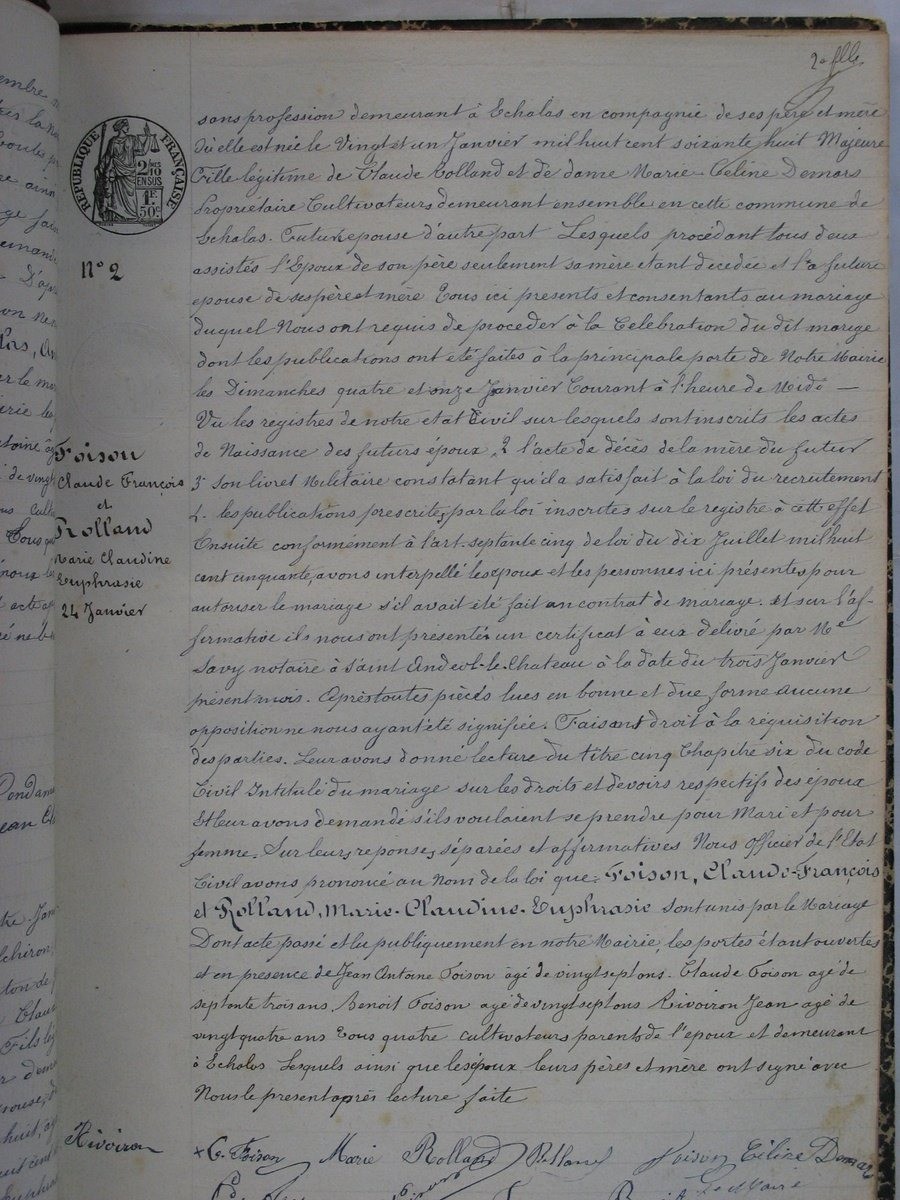 2e flle
sans profession demeurant à Echalas en compagnie de ses père et mère
Où elle est née le Vingt et un Janvier mil huit cent soixante huit Majeure
Fille légitime de Claude Rolland et de dame Marie-Celine Demars
Propriétaire Cultivateurs demeurant ensemble en cette commune de
Echalas. Future epouse d'autre part Lesquels procédant tous deux
assistés l'Epoux de son père seulement sa mère etant decedée et la future
epouse de ses père et mère Tous ici presents et consentants au mariage
duquel Nous ont requis de proceder à la Celebration du dit marige
dont les publications ont été faites à la principale porte de Notre Mairie
les Dimanches quatre et onze Janvier Courant à l'heure de Midi —
Vu les registres de notre etat Civil sur lesquels sont inscrits les actes
de Naissance des futurs époux, 2 l'acte de décès de la mère du futur
3 son livret Militaire constatant qu'il a satisfait à la loi du recrutement
4. les publications prescrites par la loi inscrites sur le registre à cet effet
Ensuite conformément à l'art. septante cinq de loi du dix Juillet mil huit
cent cinquante, avons interpellé les epoux et les personnes ici présentes pour
autoriser le mariage s'il avait été fait un contrat de mariage. et sur l'af-
firmative ils nous ont présenté un certificat à eux délivré par Me
Savy notaire à Saint Andeol-le-Chateau à la date du trois Janvier
présent mois. Après toutes pièces lues en bonne et due forme aucune
opposition ne nous ayant été signifiée. Faisant droit à la réquisition
des parties. Leur avons donné lecture du titre cinq Chapitre six du code
Civil Intitulé du mariage sur les droits et devoirs respectifs des époux
Et leur avons demandé s'ils voulaient se prendre pour Mari et pour
femme. Sur leurs reponses séparées et affirmatives Nous Officier de l'Etat
Civil avons prononcé au Nom de la loi que: Foison, Claude-François
et Rolland, Marie-Claudine-Euphrasie sont unis par le Mariage
Dont acte passé et lu publiquement en notre Mairie, les portes étant ouvertes
et en presence de Jean Antoine Foison âgé de vingt sept ans. Claude Foison agé de
septante trois ans, Benoit Foison agé de vingt sept ans Rivoiron Jean agé de
vingt quatre ans Tous quatre cultivateurs parents de l'epoux et demeurant
à Echalas Lesquels ainsi que les époux leurs pères et mère ont signé avec
Nous le present après lecture faite
RÉPUBLIQUE FRANÇAISE
2/10 EN SUS
1F 50c
N° 2
Foison
Claude François
et
Rolland
Marie Claudine
Euphrasie
24 Janvier
Rivoiron
C. Foison Marie Rolland Rolland Foison Céline Demars
Le Maire